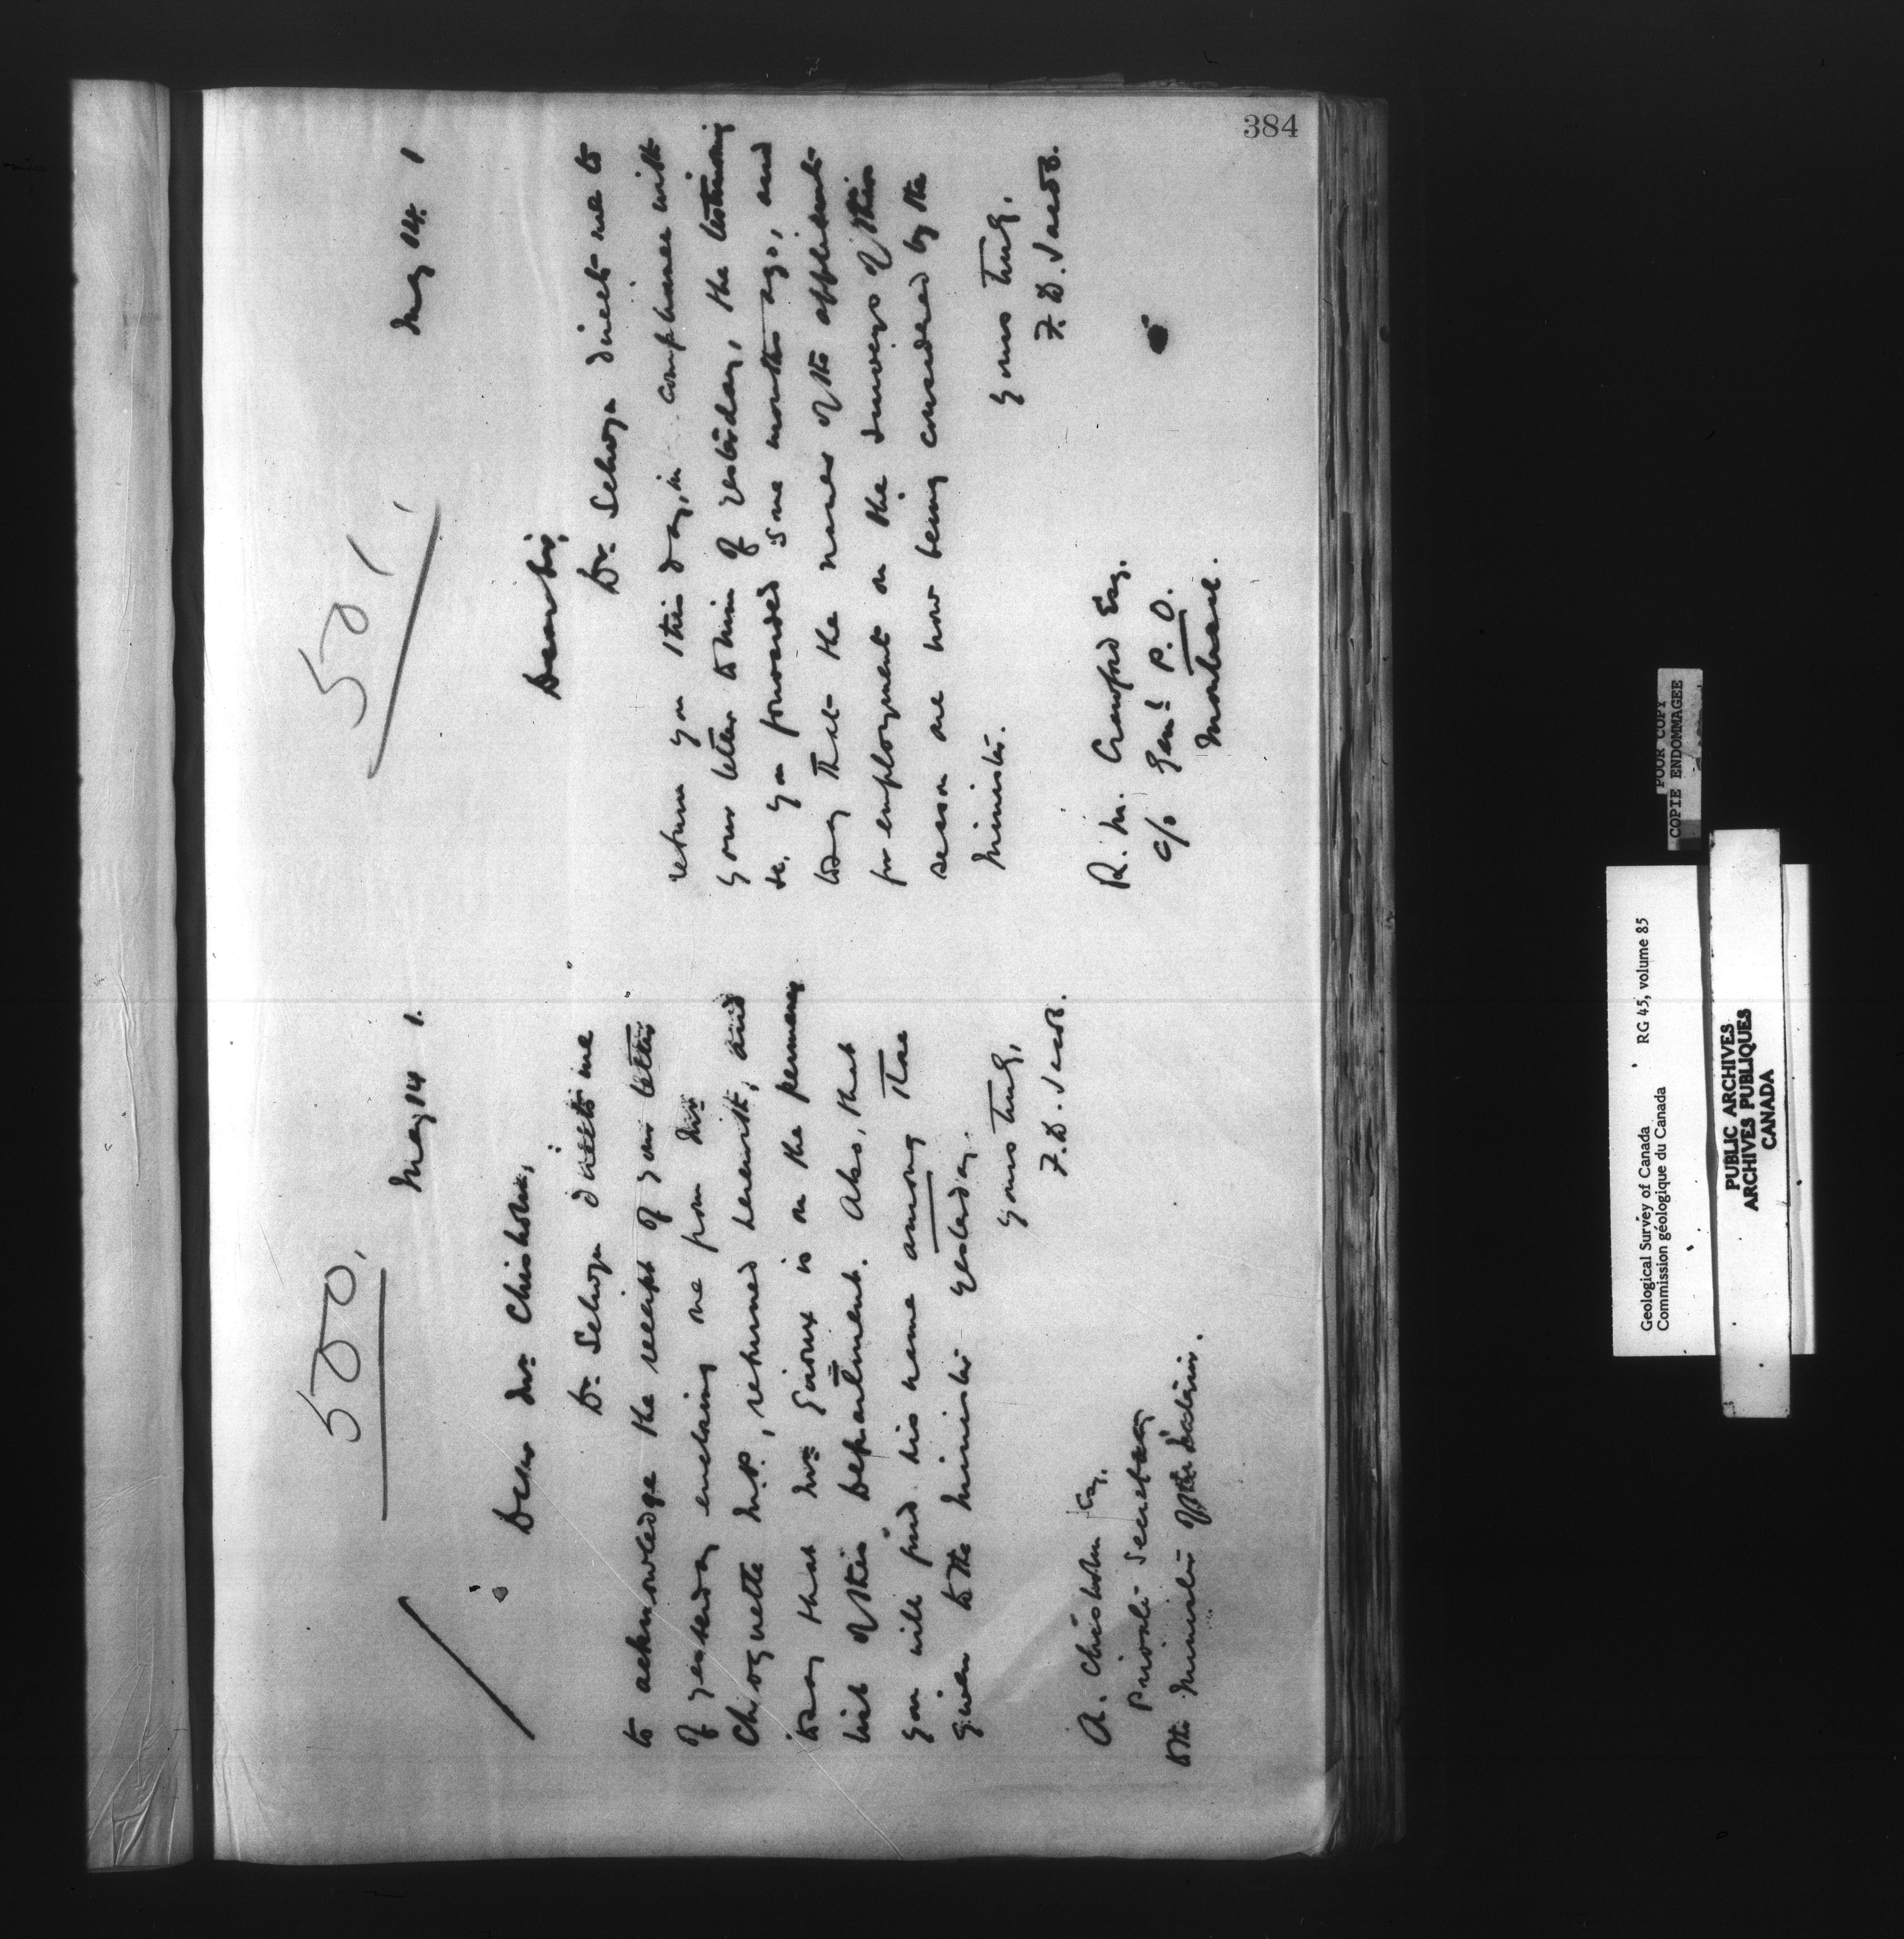 384
500.
May 14 1.
Dear Mr. Chisholm,
Dr. Selwyn directs me
to acknowledge the receipt of your letter
of yesterday enclosing one from Mr.
Choquette M.P., returned herewith, and
to say that Mr. Giroux is on the permanent
list of this Department. Also, that
you will find his name among those
given to the Minister yesterday.
Yours truly,
A. Chisholm Esq.
Private Secretary
to the Minister of the Interior.
501
May 14. 1
Dear Sir,
Dr. Selwyn directs me to
return you this day, in compliance with
your letter to him of yesterday, the testimony
&c. you forwarded some months ago, and
to say that the names of the applicants
for employment on the surveys of this
season are now being considered by the
Minister.
Yours truly,
R. M. Crawford Esq.
c/o Genl P. O.
Montreal.
POOR COPY
COPIE ENDOMMAGEE
Geological Survey of Canada RG 45, volume 85
Commission géologique du Canada
PUBLIC ARCHIVES
ARCHIVES PUBLIQUES
CANADA